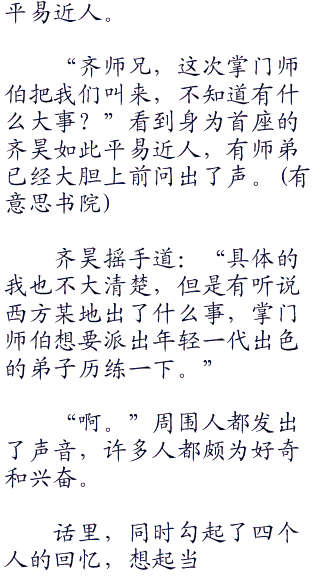 平易近人。
“齐师兄，这次掌门师
伯把我们叫来，不知道有什
么大事？”看到身为首座的
齐昊如此平易近人，有师弟
已经大胆上前问出了声。(有
意思书院)
齐昊摇手道：“具体的
我也不大清楚，但是有听说
西方某地出了什么事，掌门
师伯想要派出年轻一代出色
的弟子历练一下。”
“啊。”周围人都发出
了声音，许多人都颇为好奇
和兴奋。
话里，同时勾起了四个
人的回忆，想起当